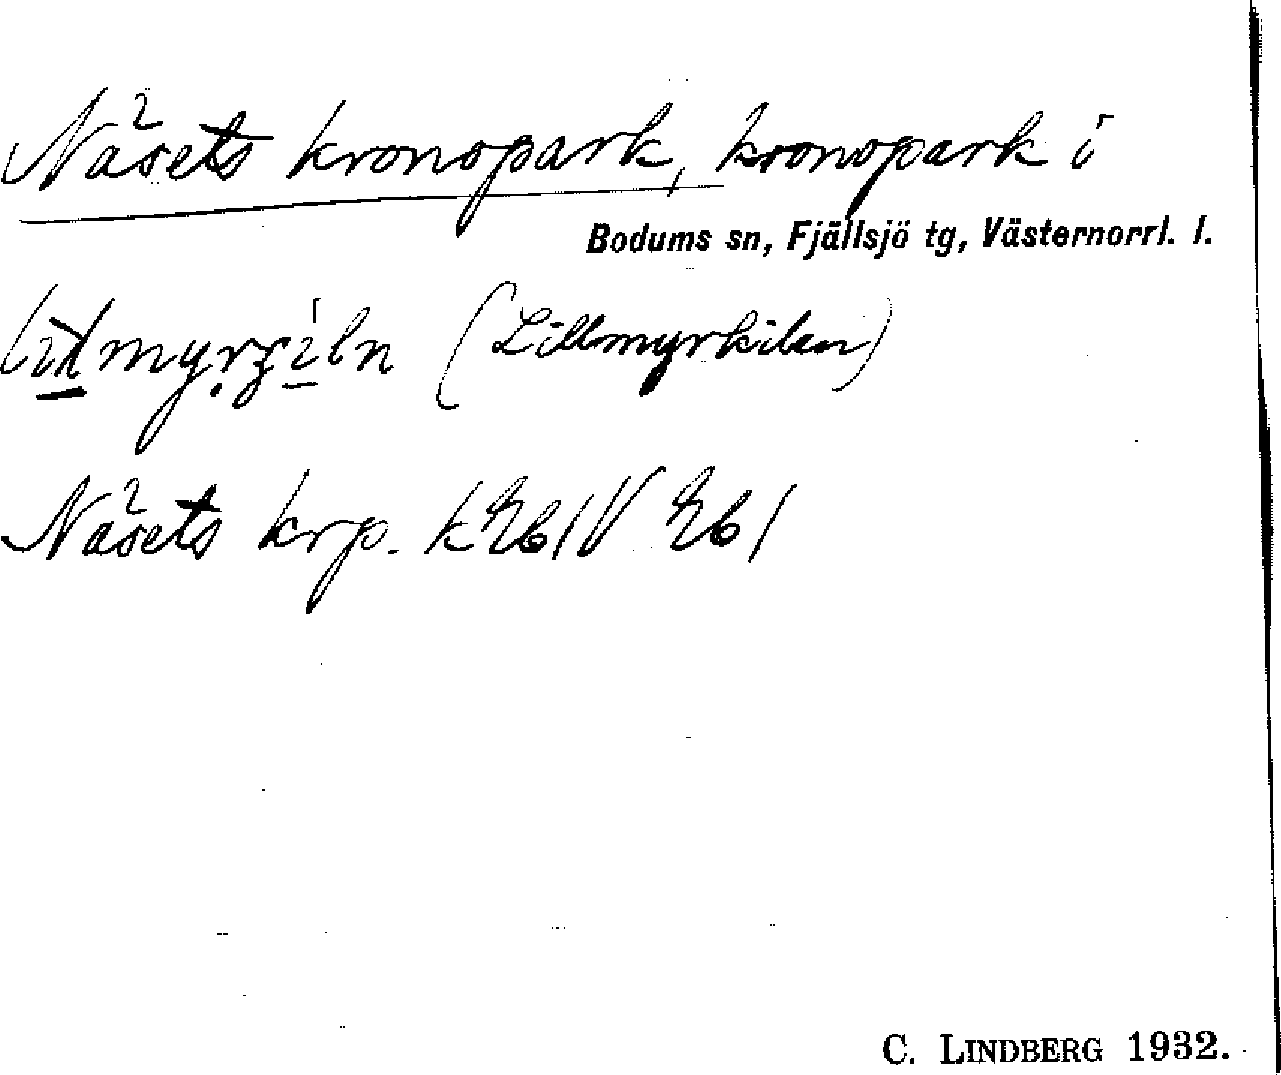 Näsets kronopark, kronopark i
Bodums sn, Fjällsjö tg, Västernorrl. l.
(Lillmyrkilen)
Näsets krp.
C. LINDBERG 1932.